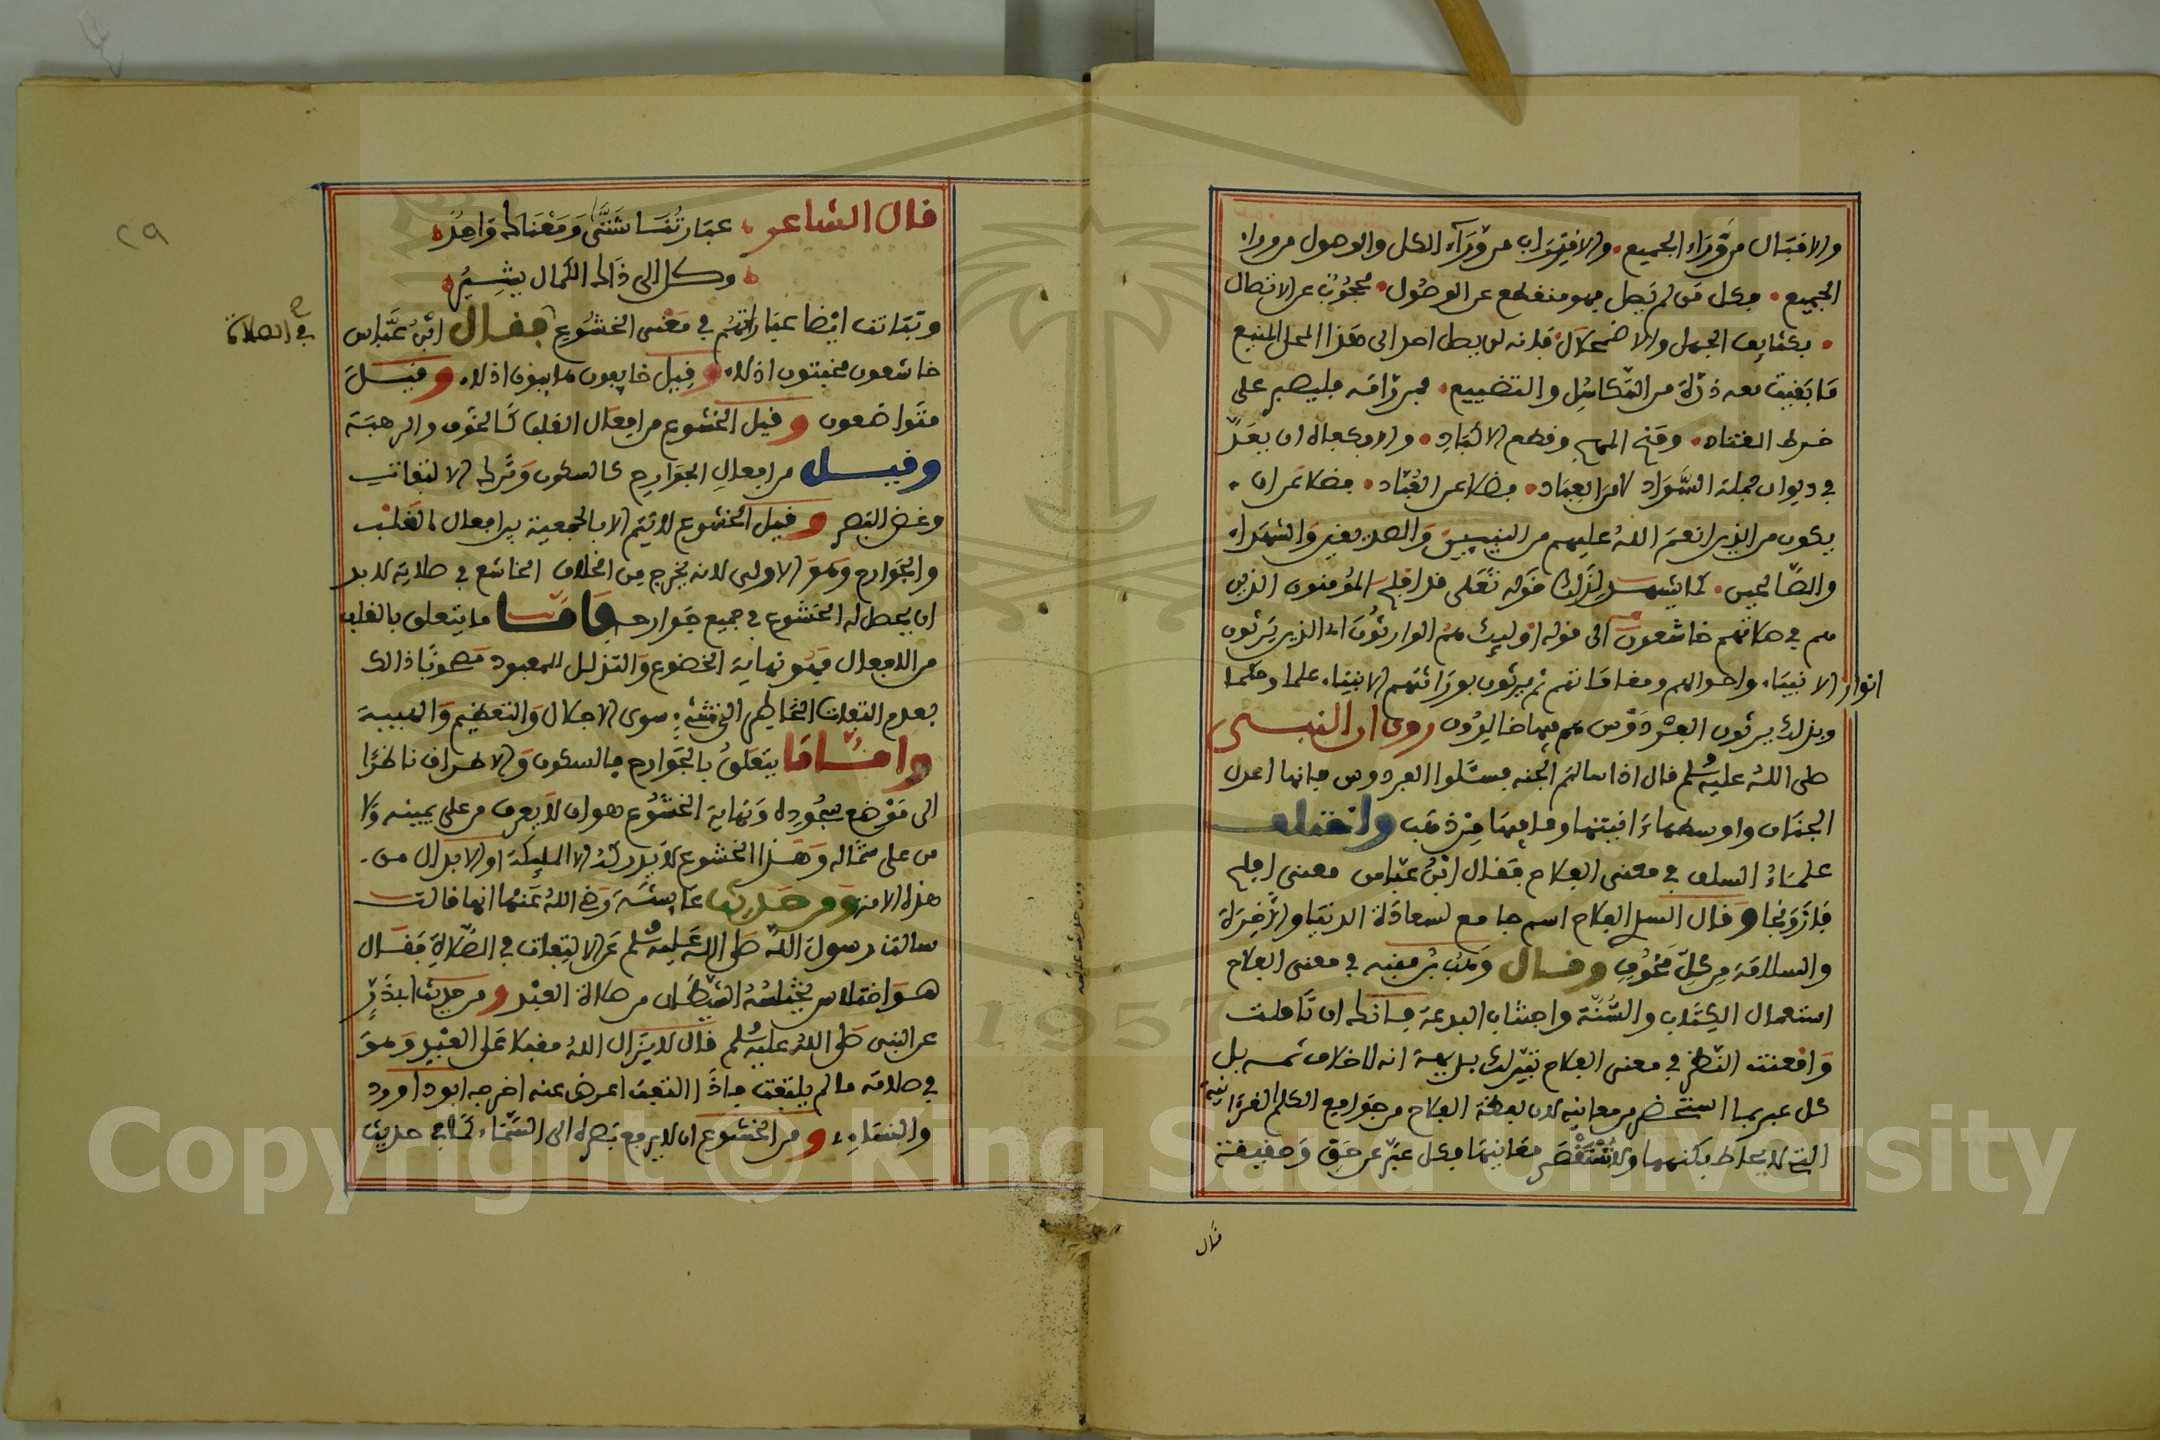 والاقبال من وراء الجميع والاقتراب من وراء الكل والوصول من وراء
الجميع فكل من لم يصل فهو منقطع عن الوصول محجوب عن الاتصال
بكثايف الجهل والاضمحلال فانه لن يصل احد الى هذا المحل المنيع
ما بقيت معه ذرة من التكاسل والتضييع فمن رامه فليصبر على
خرط القتاد وقطع الاكباد والا فكفاه ان يعد
في ديوان جملة السواد لا من العباد فضلا عن العباد فضلا عن ان
يكون من الذين انعم الله عليهم من النبيين والصديقين والشهداء
والصالحين كما يشهد لذلك قوله تعلى قد افلح المؤمنون الذين
هم في صلاتهم خاشعون الى قوله اوليك هم الوارثون الذين يرثون
انوار الانبياء واحوالهم ومقاماتهم ثم يرثون بوراثتهم الانبياء علما وحكما
وبذلك يرثون الفردوس هم فيها خالدون روى ان النبي
صلى الله عليه وسلم قال اذا سالتم الجنه فسئلوا الفردوس فانها اعدل
الجنان واوسطها وما فيها من ذهب واختلف
علماء السلف في معنى الفلاح فقال ابن عباس معنى افلح
فاز ونجا وقال الفلاح اسم جامع لسعادة الدنيا والاخرة
والسلامة من كل مخوف وقال وهب بن منبه في معنى الفلاح
استعمال الكتاب والسنة واجتناب البدعة فانك ان تاملت
وامعنت النظر في معنى الفلاح تبين لك بديهة انه لا خلاف ثمه بل
كل عبر بما استحضر من معانيه لان لفظة الفلاح من جوامع الكلم القرآنية
التي لا يحاط بكنهها ولا تستقصى معانيها فكل عبر عن حق وحقيقة
قال
٢٩
قال الشاعر عباراتنا شتى ومعناك واحد
وكل الى ذاك الكمال يشير
في الصلاة
وتباينت ايضا عباراتهم في معنى الخشوع فقال ابن عباس
خاشعون مخبتون اذلاء وقيل خايفون وقيل
متواضعون وقيل الخشوع من افعال القلب كالخوف والرهبة
وقيل من افعال الجوارح كالسكون وترك الالتفات
وغض البصر وقيل الخشوع لا يتم الا بالجمعية بين افعال القلب
والجوارح وهو الاولى لانه يخرج من الخلاف الخاشع في صلاته لا بد
ان يحصل له الخشوع في جميع جوارحه فاما ما يتعلق بالقلب
من الافعال فهو نهاية الخضوع والتذلل للمعبود مصحوبا ذالك
بعدم التفات الخاطر الى شيء سوى الاجلال والتعظيم والهيبة
واما ما يتعلق بالجوارح فالسكون والاطراف ناظرا
الى موضع سجوده ونهاية الخشوع هو ان لا يعرف من على يمينه ولا
من على شماله وهذا الخشوع لا يدركه الا المليكة او الابدال من
هذه الامة ومن حديث عايشة رضي الله عنها انها قالت
سالت رسول الله صلى الله عليه وسلم عن الالتفات في الصلاة فقال
هو اختلاس يختلسه الشيطان من صلاة العبد ومن حديث ابي ذر
عن النبي صلى الله عليه وسلم قال لا يزال الله مقبلا على العبد وهو
في صلاته ما لم يلتفت فاذا التفت اعرض عنه اخرجه ابو داوود
والنساءي ومن الخشوع ان لا يرفع بصره الى السماء كما في حديث
Copyright © King Saud University
1957